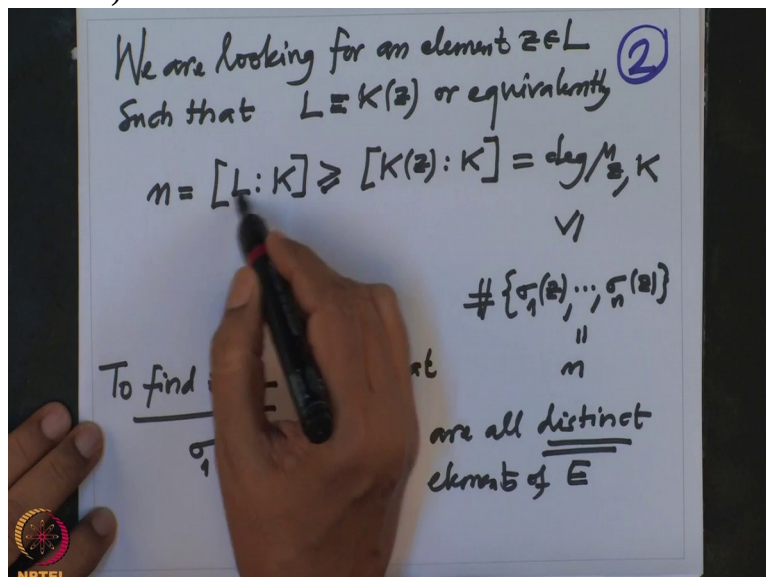 We are looking for an element z∈L
Such that L = K(z) or equivalently
②
n = [L : K] ⩾ [K(z) : K] = deg μ_z, K
⩾
# {σ₁(z), ⋯, σₙ(z)}
=
n
To find
σ₁
are all distinct
elements of E
NPTEL